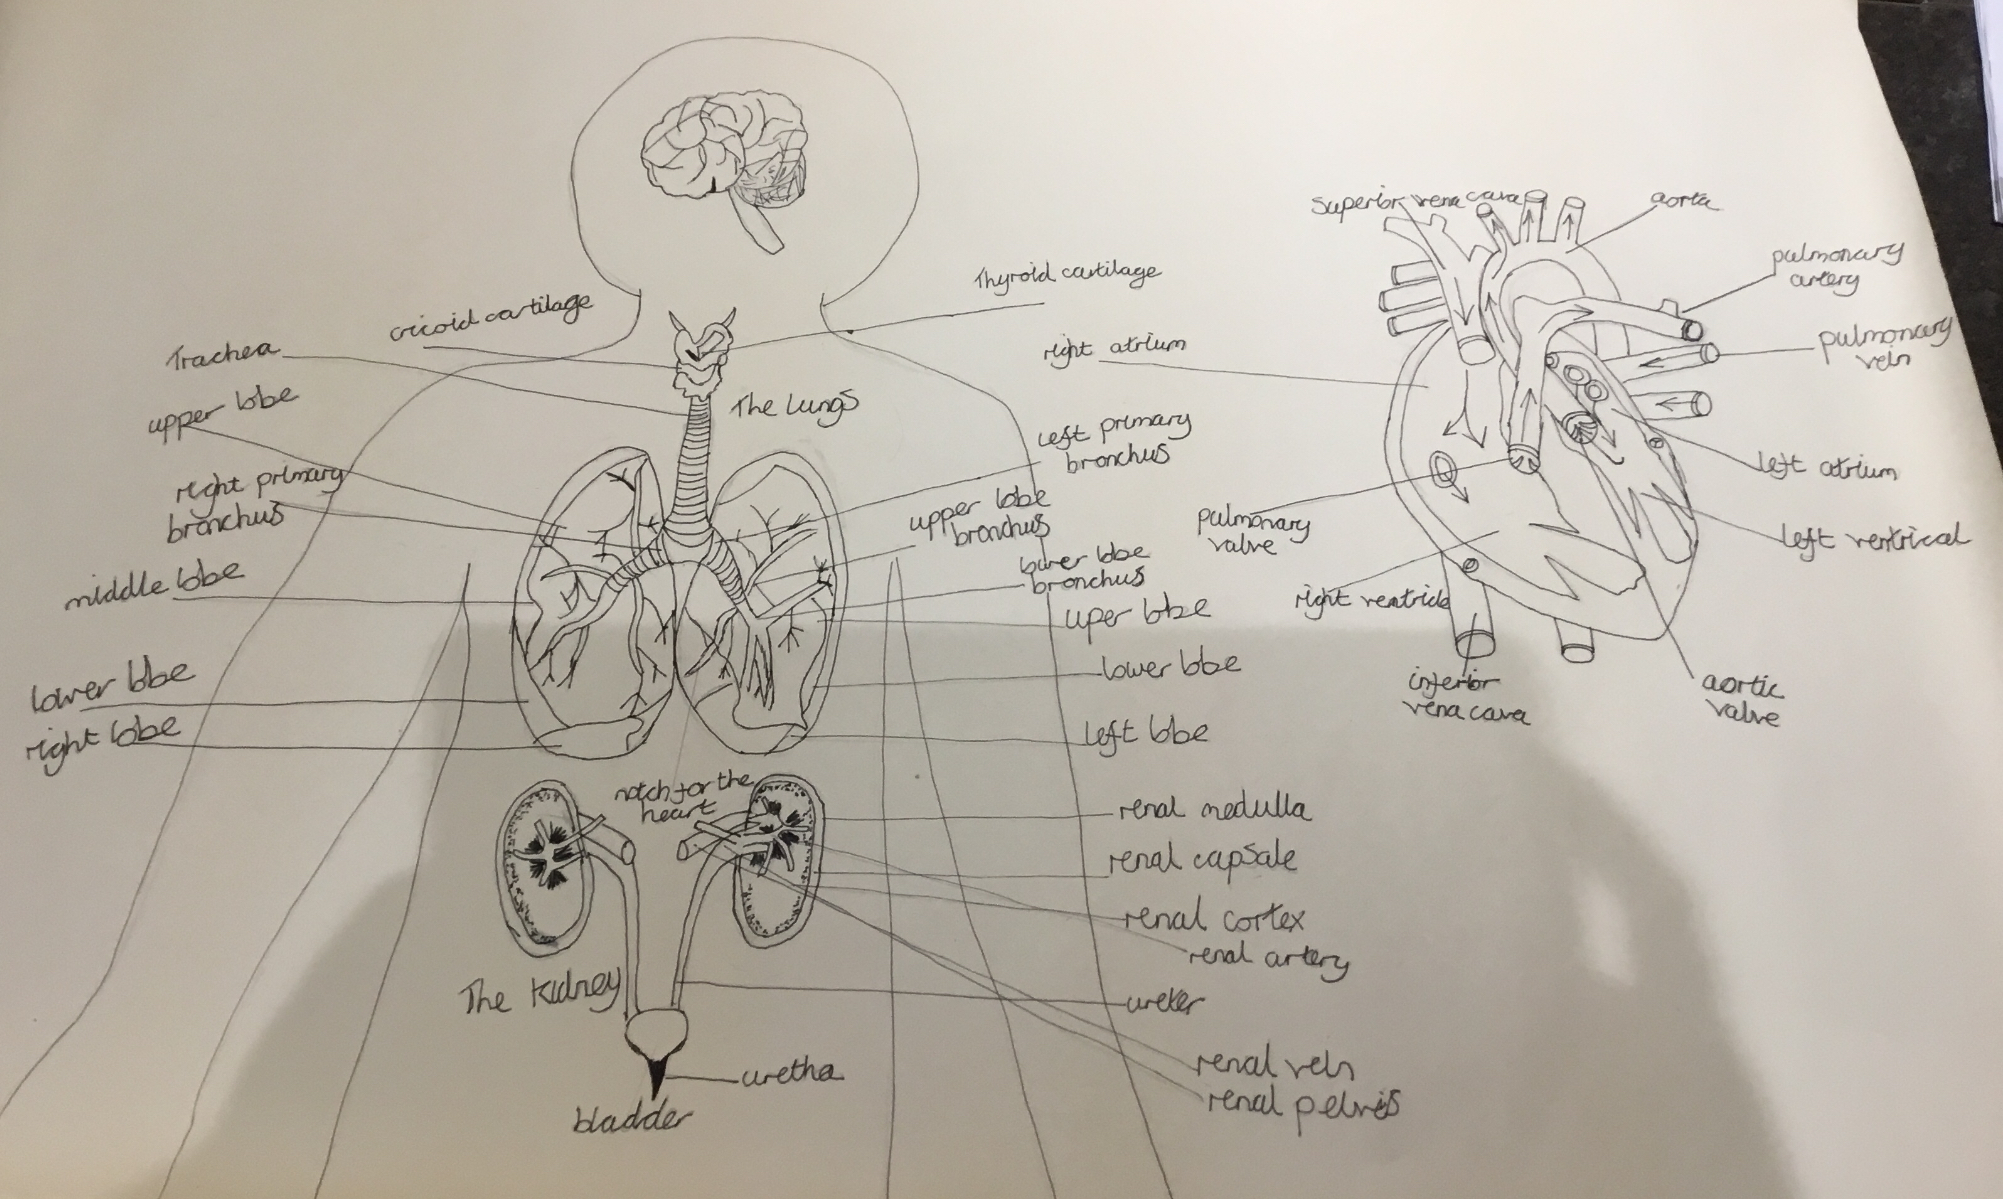 superior vena cava
aorta
pulmonary
artery
pulmonary
vein
Thyroid cartilage
cricoid cartilage
Trachea
right atrium
upper lobe
The Lungs
left primary
bronchus
left atrium
right primary
bronchus
upper lobe
bronchus
pulmonary
valve
left ventrical
lower lobe
bronchus
middle lobe
uper lobe
right ventricle
lower lobe
lower lobe
inferior
vena cava
aortic
valve
right lobe
left lobe
notch for the
heart
renal medulla
renal capsale
renal cortex
renal artery
The Kidney
ureter
renal vein
uretha
renal pelvis
bladder